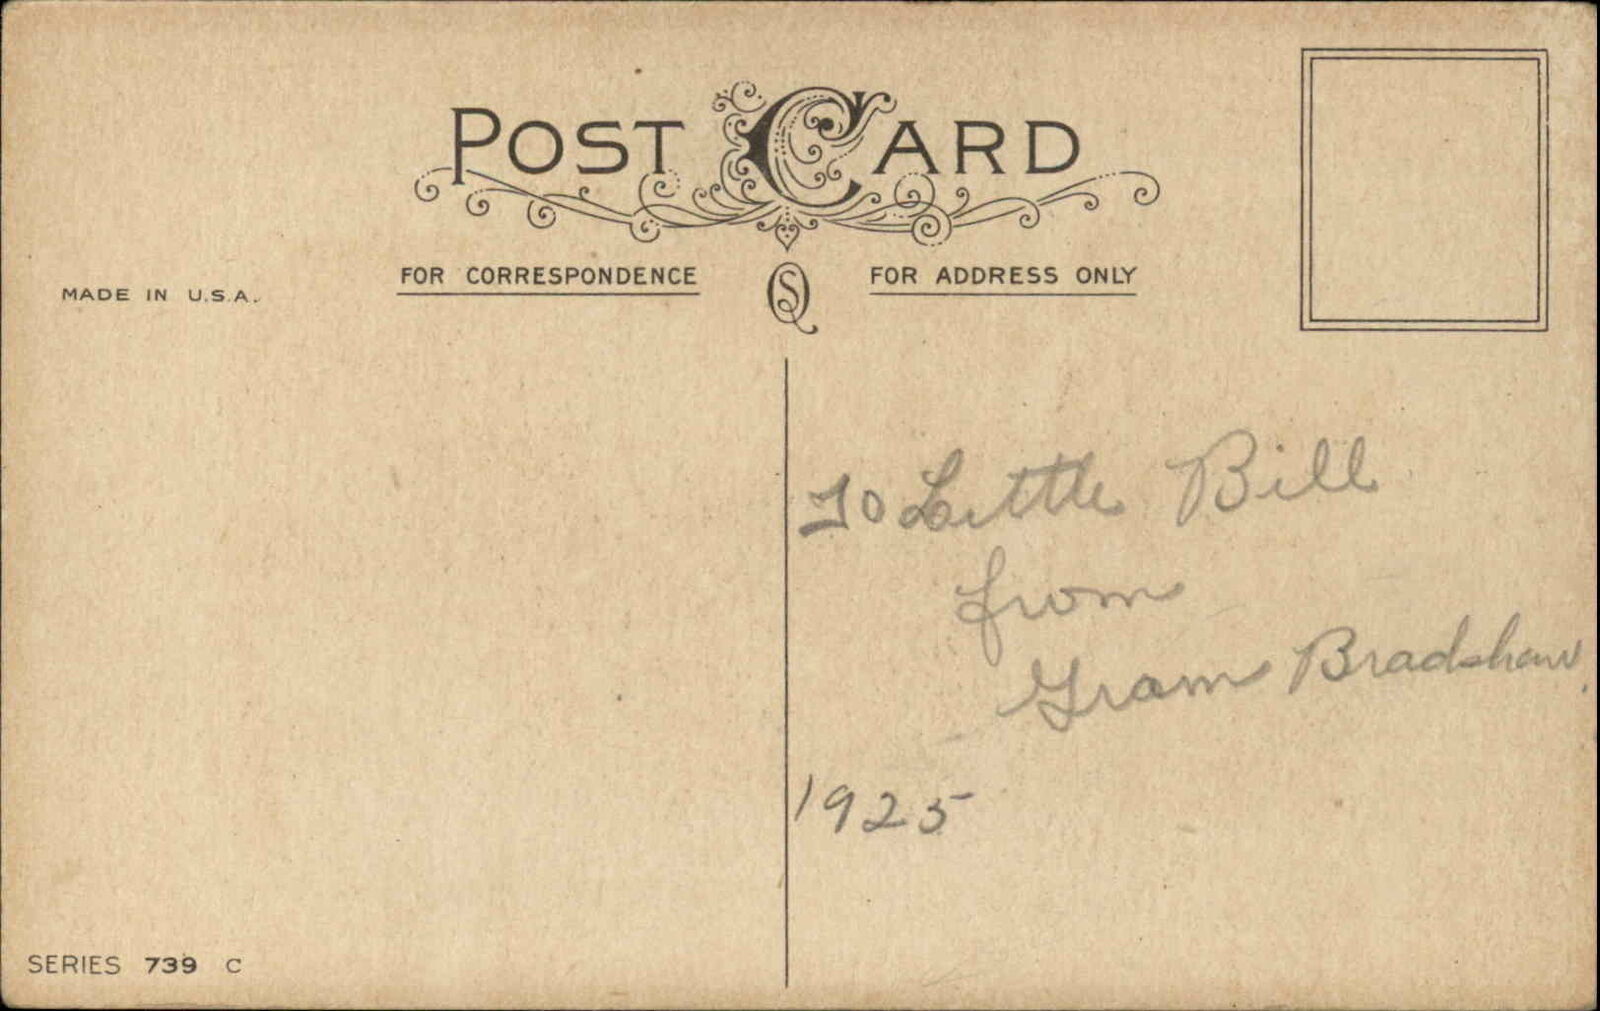 POST CARD
FOR CORRESPONDENCE
FOR ADDRESS ONLY
MADE IN U.S.A.
To Little Bill
from
Gram Bradshaw.
1925
SERIES 739 C